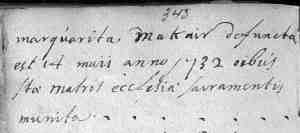 343
marguarita Makair defuncta
est 14 maii anno 1732 oibus
stæ matris ecclesia sacramentis
munita